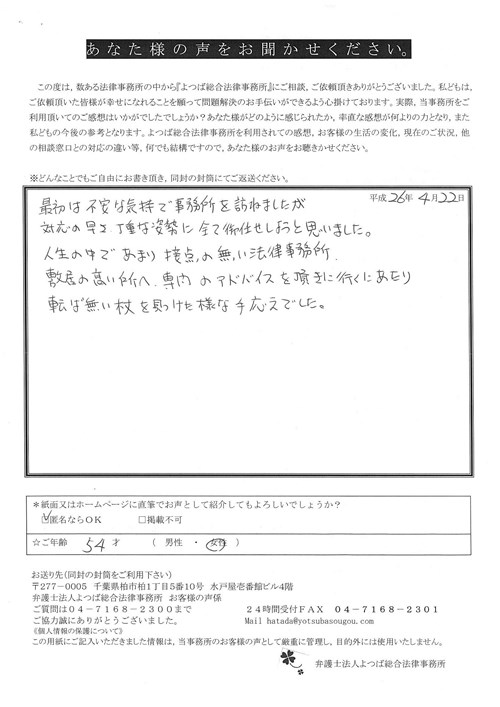 あなた様の声をお聞かせください。
この度は，数ある法律事務所の中から『よつば総合法律事務所』にご相談，ご依頼頂きありがとうございました。私どもは，
ご依頼頂いた皆様が幸せになれることを願って問題解決のお手伝いができるよう心掛けております。実際，当事務所をご
利用頂いてのご感想はいかがでしたでしょうか？あなた様がどのように感じられたか，率直な感想が何よりの力となり，また
私どもの今後の参考となります。よつば総合法律事務所を利用されての感想，お客様の生活の変化，現在のご状況，他
の相談窓口との対応の違い等，何でも結構ですので，あなた様のお声をお聴きかせください。
※どんなことでもご自由にお書き頂き，同封の封筒にてご返送ください。
平成26年4月22日
最初は不安な気持で事務所を訪ねましたが
対応の早さ丁重な姿勢に全て御任せしようと思いました。
人生の中であまり接点の無い法律事務所．
敷居の高い所へ専門のアドバイスを頂きに行くにあたり
転ば無い杖を見つけた様な手応えでした。
＊紙面又はホームページに直筆でお声として紹介してもよろしいでしょうか？
☑匿名ならOK □掲載不可
☆ご年齢 54 才 （ 男性 ・ 女性 ）
お送り先（同封の封筒をご利用下さい）
〒277－0005 千葉県柏市柏1丁目5番10号 水戸屋壱番館ビル4階
弁護士法人よつば総合法律事務所 お客様の声係
ご質問は04－7168－2300まで 24時間受付FAX 04－7168－2301
ご協力誠にありがとうございました。 Mail hatada@yotsubasougou.com
《個人情報の保護について》
この用紙にご記入いただきました情報は，当事務所のお客様の声として厳重に管理し，目的外には使用いたしません。
弁護士法人よつば総合法律事務所